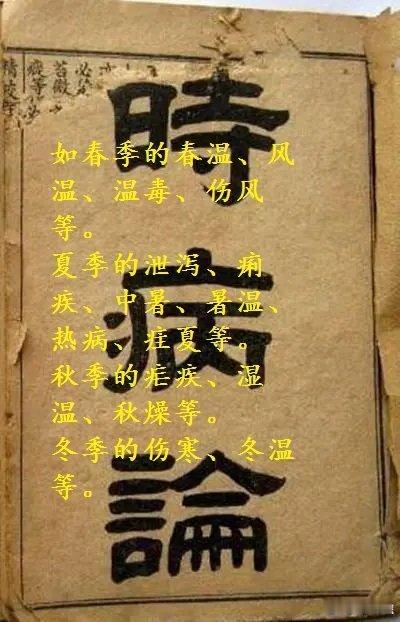 時病論
如春季的春温、风
温、温毒、伤风
等。
夏季的泄泻、痢
疾、中暑、暑温、
热病、疰夏等。
秋季的疟疾、湿
温、秋燥等。
冬季的伤寒、冬温
等。